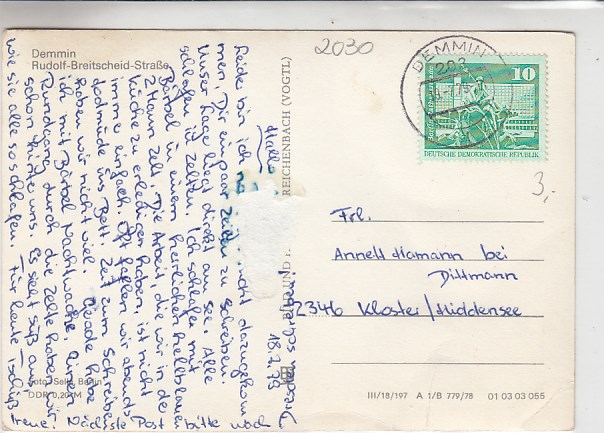 Demmin
Rudolf-Breitscheid-Straße
2030
DEMMIN
203
10
DEUTSCHE DEMOKRATISCHE REPUBLIK
3,-
REICHENBACH (VOGTL)
Hallo
Leider bin ich nicht dazugekom
men, Dir ein paar Zeilen zu schreiben.
Unser Lager liegt direkt am See. Alle
schlafen in Zelten. Ich schlafe mit
Bärbel in einem herrlichen hellblauen
2 Mann Zelt. Die Arbeit, die wir in der
Küche zu erledigen haben, ist nicht
immer einfach. Oft fallen wir abends
todmüde ins Bett. Zeit zum Schreiben
haben wir nicht viel. Gerade habe
ich mit Bärbel Nachtwache. Einen
Rundgang durch die Zelte haben wir
schon hinter uns. Es sieht süß aus,
wie sie alle so schlafen. Für heute Tschüß
Irene!
Nächste Post bitte nach
Dresden schreiben!
18.7.79
Frl.
Annett Hamann bei
Dittmann
2346 Kloster/Hiddensee
Foto: Sell, Berlin
DDR 0,20 M
III/18/197 A 1/B 779/78 01 03 03 055